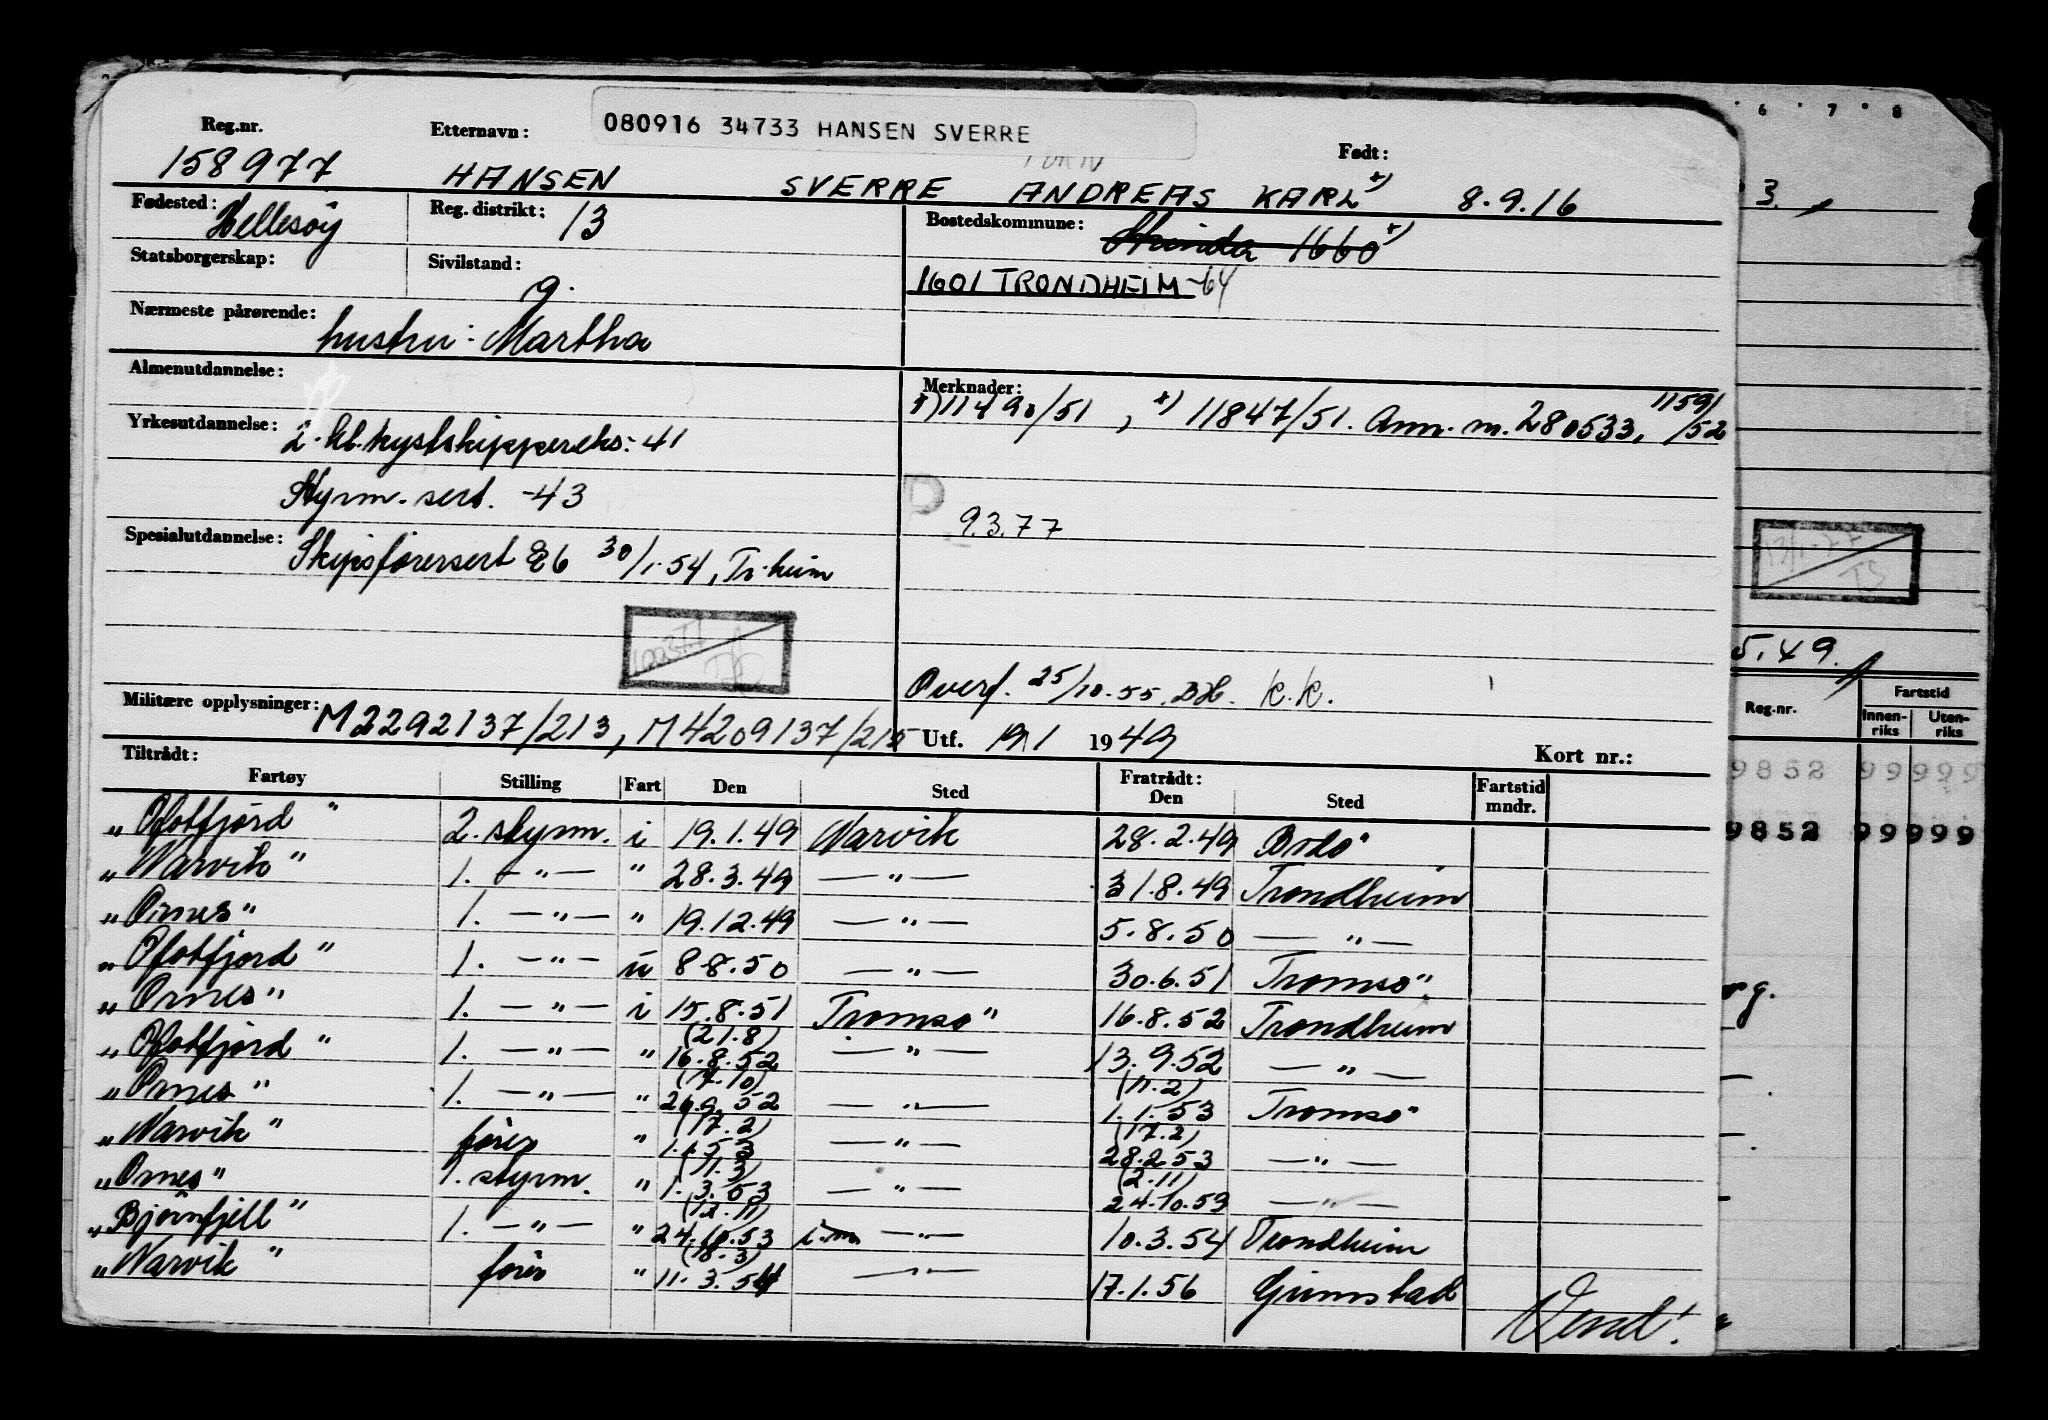 080916 34733 HANSEN SVERRE
Reg.nr. Etternavn: Født:
158977 HANSEN SVERRE ANDREAS KARL x) 8.9.16
Fødested: Hellesøy Reg. distrikt: 13 Bostedskommune: Strinda 1660 x)
Statsborgerskap: Sivilstand: g. 1601 TRONDHEIM -64
Nærmeste pårørende: hustru: Martha
Almenutdannelse: Merknader:
x) 11490/51, x) 11847/51. Ann. m. 280533, 1159/52
Yrkesutdannelse: 2. kl. kystskippereks: -41
Styrm. sert. -43
9.3.77
Spesialutdannelse: Skipsførersert 86 30/1-54, Tr.heim
Overf. 25/10.55. K.K.
Militære opplysninger: M2292137/213, M4209137/215 Utf. 19/1 1949
Tiltrådt: Fratrådt: Kort nr.:
Fartøy Stilling Fart Den Sted Den Sted Fartstid mndr.
"Ofotfjord" 2. styrm. i 19.1.49 Narvik 28.2.49 Bodø
"Narvik" 1. —"— " 28.3.49 —"— 31.8.49 Trondheim
"Ornes" 1. —"— " 19.12.49 —"— 5.8.50 —"—
"Ofotfjord" 1. —"— u 8.8.50 —"— 30.6.51 Tromsø
"Ornes" 1. —"— i 15.8.51 Tromsø 16.8.52 Trondheim
"Ofotfjord" 1. —"— " (21.8) 16.8.52 —"— 13.9.52 —"—
"Ornes" 1. —"— " (17.10) 26.9.52 —"— (11.2) 1.1.53 Tromsø
"Narvik" fører " (17.2) 1.1.53 —"— (17.2) 28.2.53 —"—
"Ornes" 1. styrm. " (11.3) 1.3.53 —"— (2.11) 24.10.53 —"—
"Bjørnfjell" 1. —"— " (12.11) 24.10.53 i.m —"— 10.3.54 Trondheim
"Narvik" fører " (18.3) 11.3.54 —"— 17.1.56 Grimstad
Vend!
6 7 8
3.
5.49.
Reg.nr. Fartstid
Innenriks Utenriks
9852 99999
9852 99999